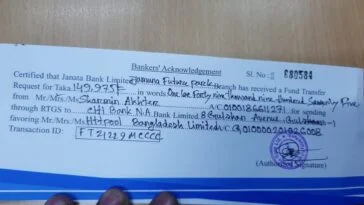 Bankers' Acknowledgement
SL. No 680584
Certified that Janata Bank Limited Jamuna Future park Branch has received a Fund Transfer
Request for Taka 149,975/= in words One lac Forty nine thousand nine hundred Seventy Five
from Mr./Mrs./Ms Sharmin Akhter A/C 0100186611271 for sending
through RTGS to CITI Bank N.A Bank Limited 8 Gulshan Avenue, Gulshan-1
favoring Mr./Mrs./Ms Httpool Bangladesh Limited A/C
Transaction ID:
(Authorised Signature)